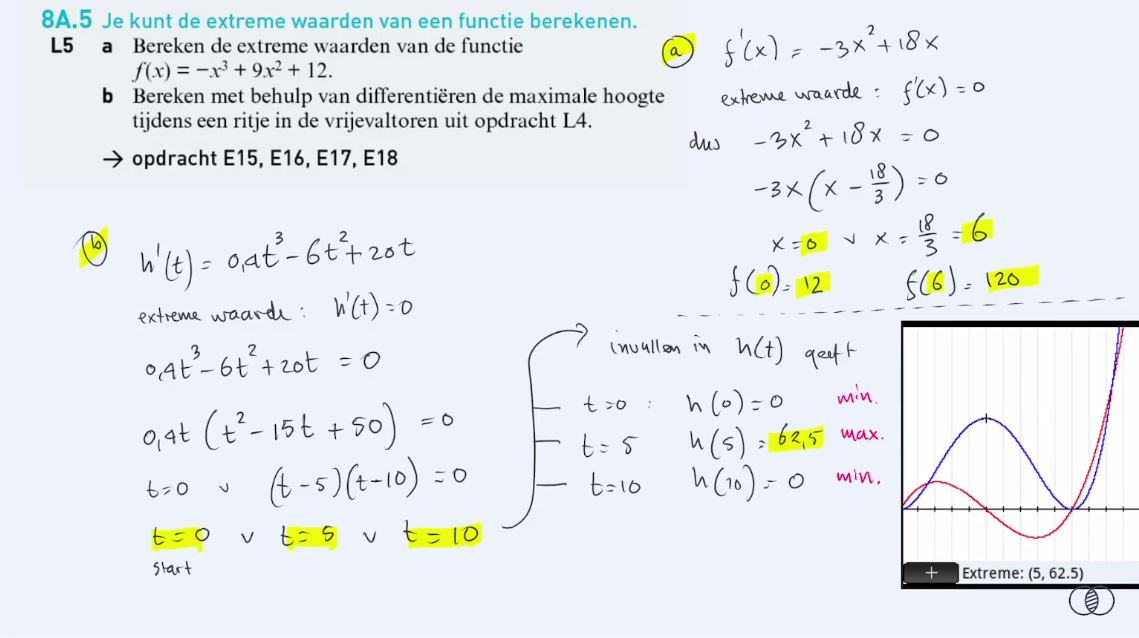 8A.5 Je kunt de extreme waarden van een functie berekenen.
L5 a Bereken de extreme waarden van de functie
f(x) = −x³ + 9x² + 12.
b Bereken met behulp van differentiëren de maximale hoogte
tijdens een ritje in de vrijevaltoren uit opdracht L4.
→ opdracht E15, E16, E17, E18
a f'(x) = -3x² + 18x
extreme waarde : f'(x) = 0
dus -3x² + 18x = 0
-3x (x - 18/3) = 0
x = 0 ∨ x = 18/3 = 6
f(0) = 12 f(6) = 120
b h'(t) = 0,4t³ - 6t² + 20t
extreme waarde : h'(t) = 0
0,4t³ - 6t² + 20t = 0
0,4t (t² - 15t + 50) = 0
t = 0 ∨ (t - 5)(t - 10) = 0
t = 0 ∨ t = 5 ∨ t = 10
start
invullen in h(t) geeft
t = 0 : h(0) = 0 min.
t = 5 h(5) = 62,5 max.
t = 10 h(10) = 0 min.
+ Extreme: (5, 62.5)